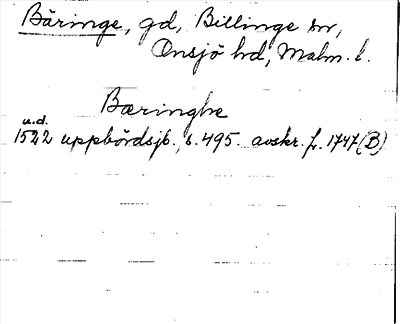 Bäringe, gd, Billinge sn,
Onsjö hd, Malm. l.
Bæringhe
u.d.
1522 uppbördsjb. s. 495. avskr. fr. 1747 (B)